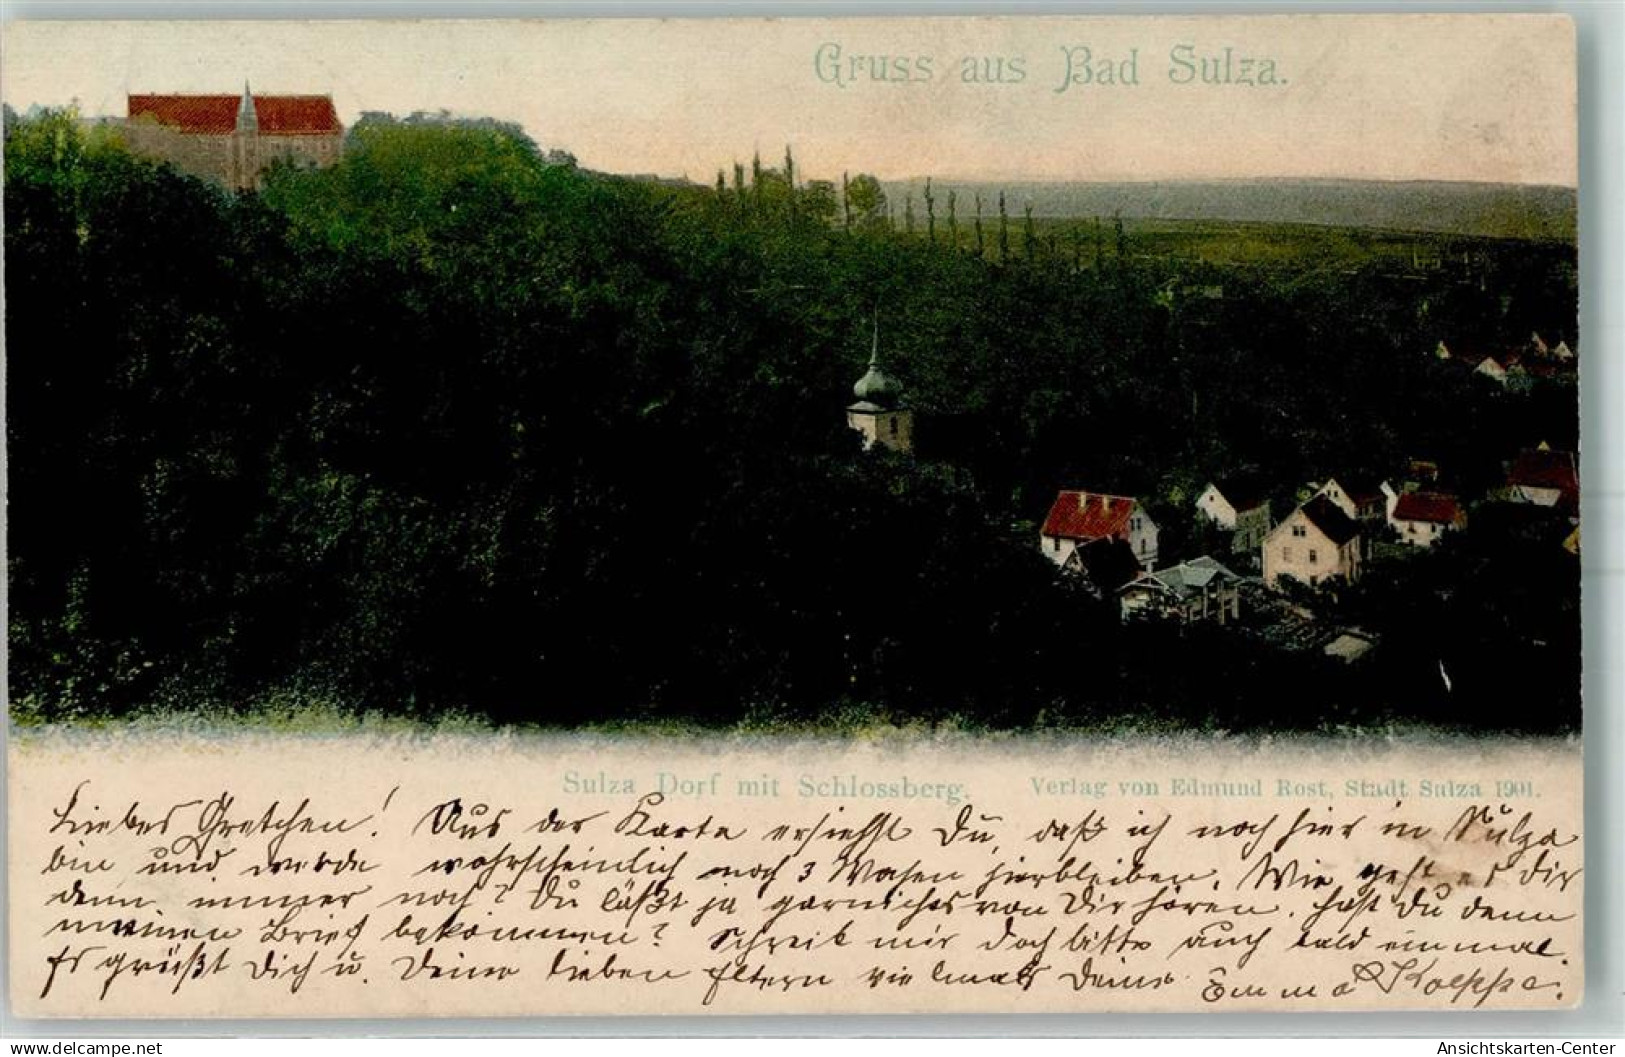 Gruss aus Bad Sulza.
Sulza Dorf mit Schlossberg.
Verlag von Edmund Rost, Stadt Sulza 1901.
Liebes Gretchen! Aus der Karte ersiehst Du, daß ich noch hier in Sulza
bin und werde wahrscheinlich noch 3 Wochen hierbleiben. Wie geht es Dir
denn immer noch? Du läßt ja garnichts von Dir hören. Hast Du denn
meinen Brief bekommen? Schreib mir doch bitte auch bald einmal.
Es grüßt Dich u. Deine lieben Eltern vielmals Deine Emma Koeppe.
Ansichtskarten-Center
www.delcampe.net